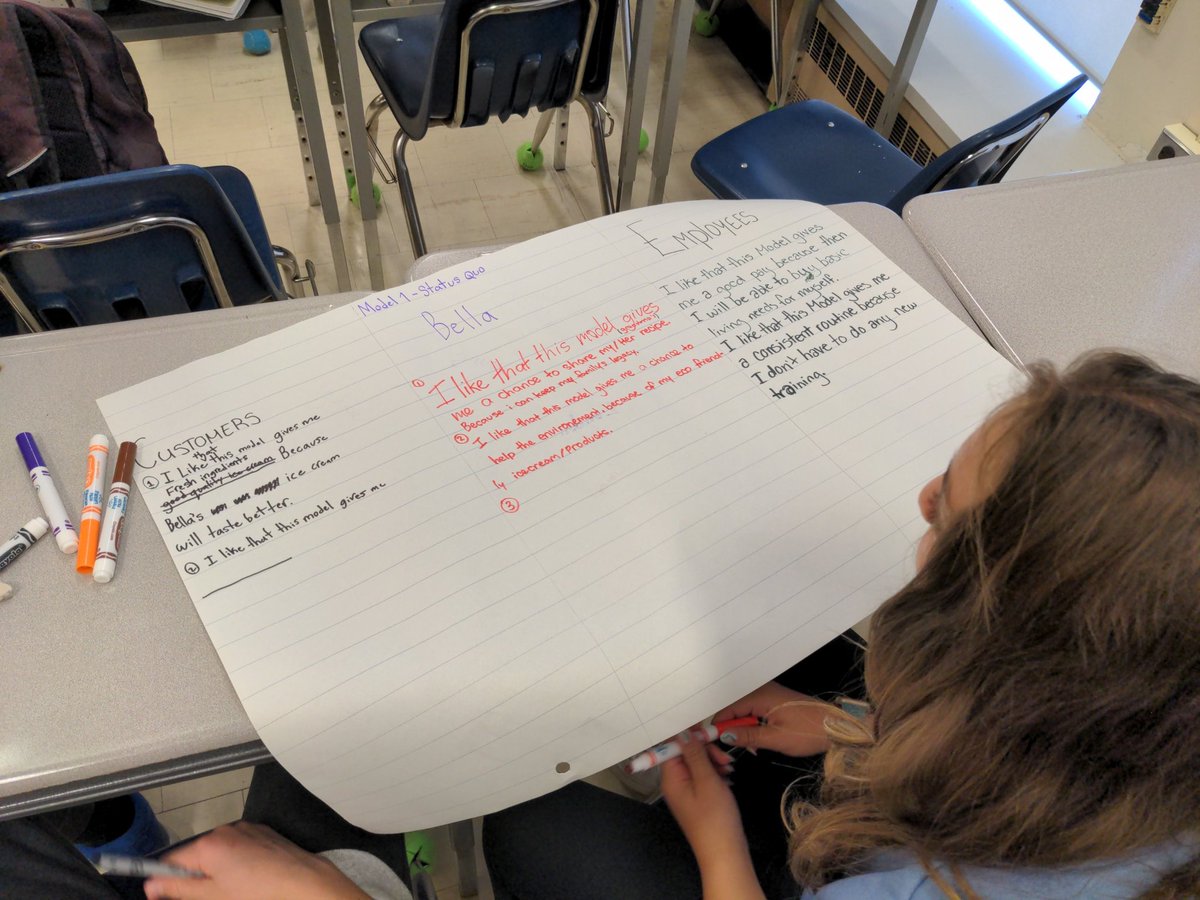 Model 1 - Status Quo
CUSTOMERS
① I Like this model gives me
that
Fresh ingredients
good quality ice cream Because
Bella's ice cream
will taste better.
② I like that this model gives me
Bella
① I like that this model gives
me a chance to share my/her recipe.
Because i can keep my family's legacy.
② I like that this model gives me a chance to
help the environement. because of my eco friend-
↳ icecream/Products.
③
EMPLOYEES
I like that this Model gives
me a good pay because then
I will be able to buy basic
living needs for myself.
I like that this Model gives me
a consistent routine because
I don't have to do any new
training.